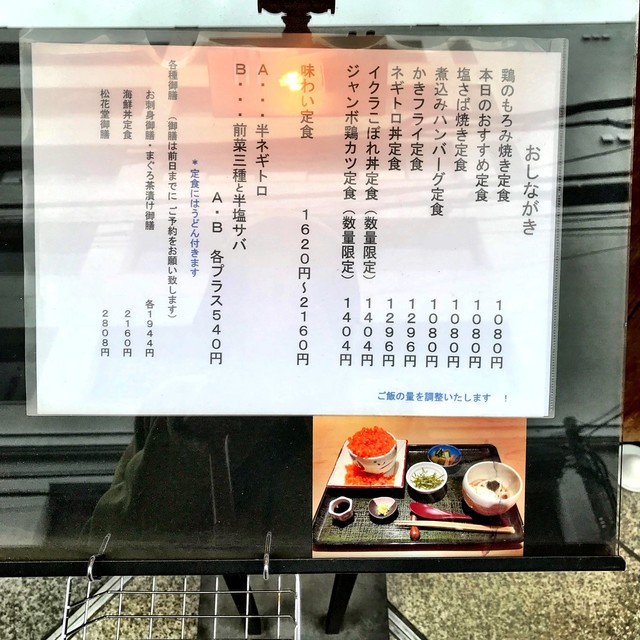 おしながき
鶏のもろみ焼き定食 1080円
本日のおすすめ定食 1080円
塩さば焼き定食 1080円
煮込みハンバーグ定食 1080円
かきフライ定食 1296円
ネギトロ丼定食 1296円
イクラこぼれ丼定食(数量限定) 1404円
ジャンボ鶏カツ定食(数量限定) 1404円
味わい定食 1620円~2160円
A・・・半ネギトロ
B・・・前菜三種と半塩サバ
A・B 各プラス540円
*定食にはうどん付きます
各種御膳 (御膳は前日までにご予約をお願い致します)
お刺身御膳・まぐろ茶漬け御膳 各1944円
海鮮丼定食 2160円
松花堂御膳 2808円
ご飯の量を調整いたします !